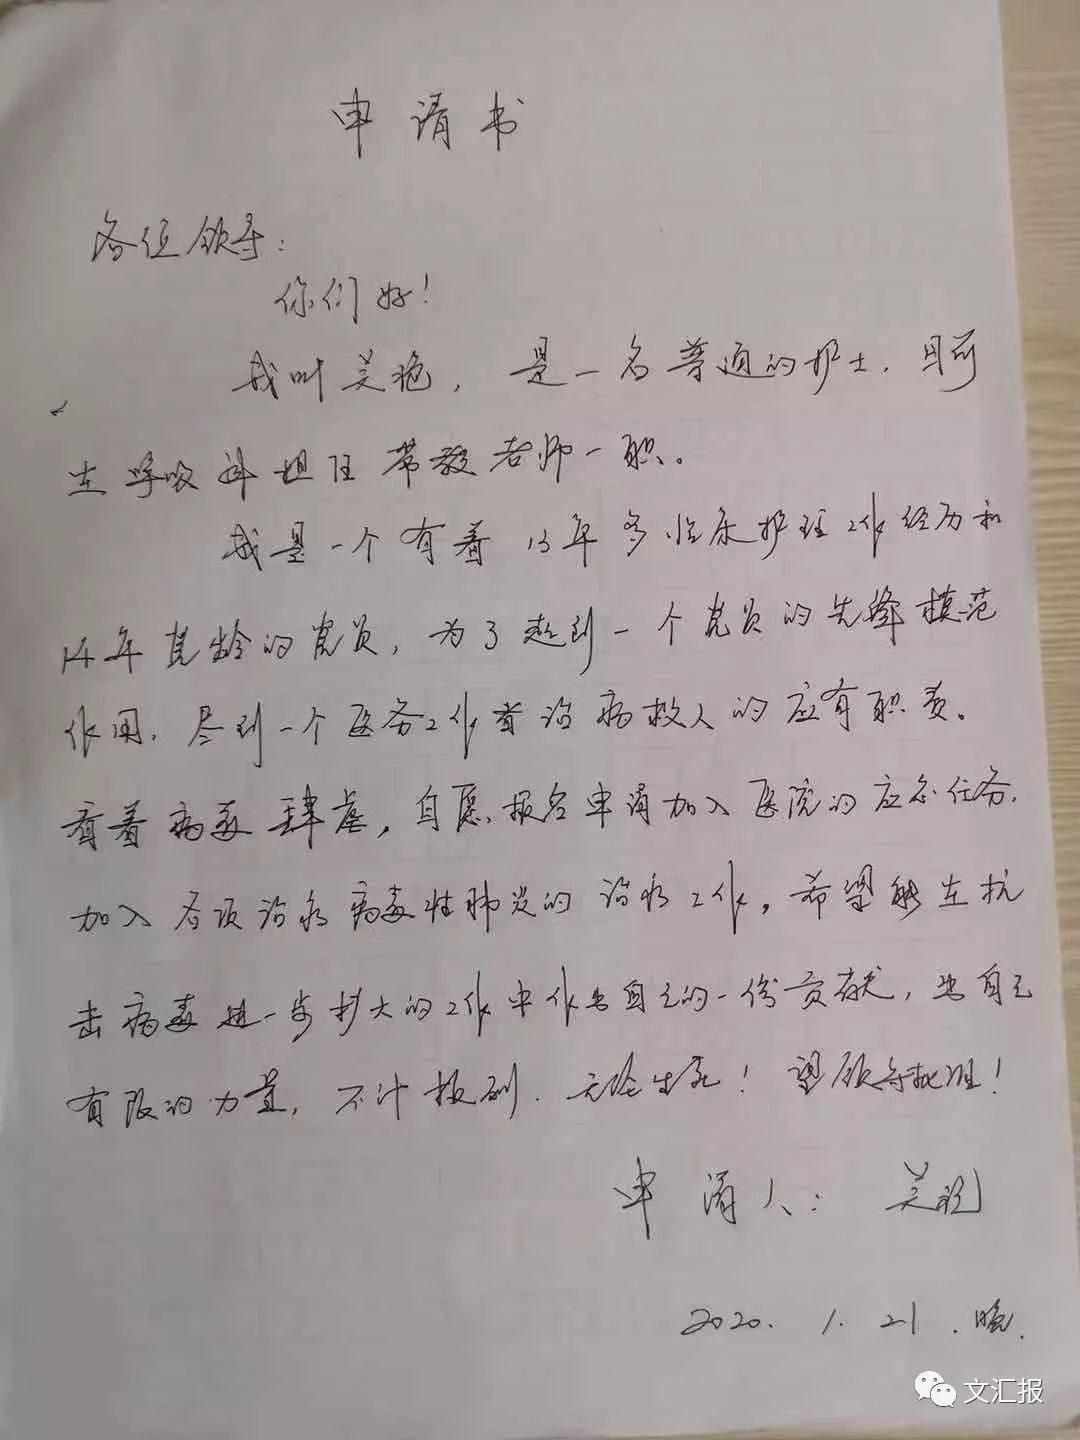 申请书
各位领导：
你们好！
我叫吴艳，是一名普通的护士，目前
在呼吸科担任带教老师一职。
我是一个有着13年多临床护理工作经历和
14年党龄的党员，为了起到一个党员的先锋模范
作用，尽到一个医务工作者治病救人的应有职责。
看着病毒肆虐，自愿报名申请加入医院的应急任务，
加入各项治疗病毒性肺炎的治疗工作。希望能在抗
击病毒进一步扩大的工作中作出自己的一份贡献，出自己
有限的力量，不计报酬，无论生死！望领导批准！
申请人：吴艳
2020.1.21.晚.
文汇报